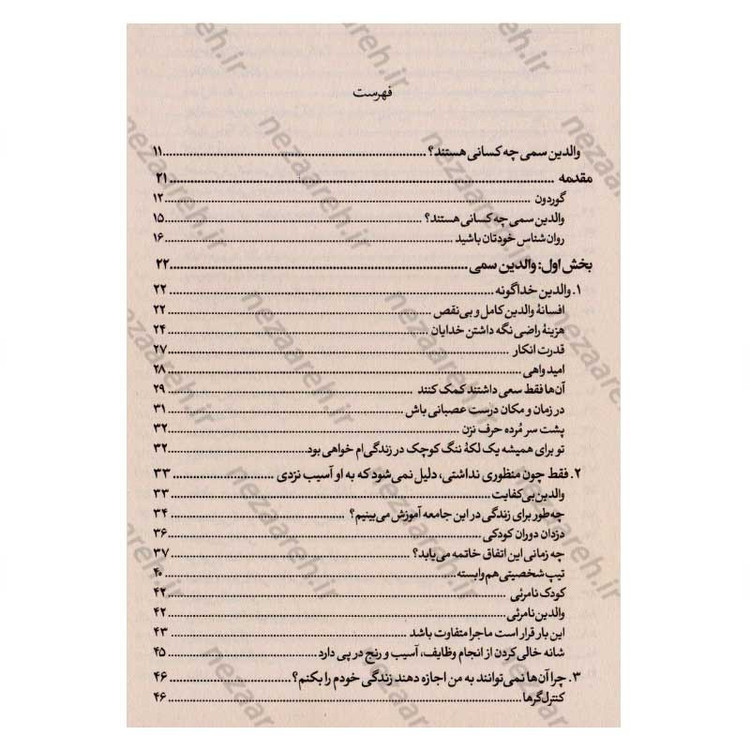 فهرست
والدین سمی چه کسانی هستند؟ ........ ۱۱
مقدمه ........ ۲۱
گوردون ........ ۱۲
والدین سمی چه کسانی هستند؟ ........ ۱۵
روان‌شناس خودتان باشید ........ ۱۶
بخش اول: والدین سمی ........ ۲۲
۱. والدین خداگونه ........ ۲۲
افسانهٔ والدین کامل و بی‌نقص ........ ۲۲
هزینهٔ راضی نگه داشتن خدایان ........ ۲۴
قدرت انکار ........ ۲۷
امید واهی ........ ۲۸
آن‌ها فقط سعی داشتند کمک کنند ........ ۲۹
در زمان و مکان درست عصبانی باش ........ ۳۱
پشت سر مُرده حرف نزن ........ ۳۲
تو برای همیشه یک لکهٔ ننگ کوچک در زندگی‌ام خواهی بود ........ ۳۲
۲. فقط چون منظوری نداشتی، دلیل نمی‌شود که به او آسیب نزدی ........ ۳۳
والدین بی‌کفایت ........ ۳۳
چه‌طور برای زندگی در این جامعه آموزش می‌بینیم؟ ........ ۳۴
دزدان دوران کودکی ........ ۳۶
چه زمانی این اتفاق خاتمه می‌یابد؟ ........ ۳۷
تیپ شخصیتی هم‌وابسته ........ ۴۰
کودک نامرئی ........ ۴۲
والدین نامرئی ........ ۴۲
این بار قرار است ماجرا متفاوت باشد ........ ۴۳
شانه خالی کردن از انجام وظایف، آسیب و رنج در پی دارد ........ ۴۵
۳. چرا آن‌ها نمی‌توانند به من اجازه دهند زندگی خودم را بکنم؟ ........ ۴۶
کنترل‌گرها ........ ۴۶
nezaareh.ir